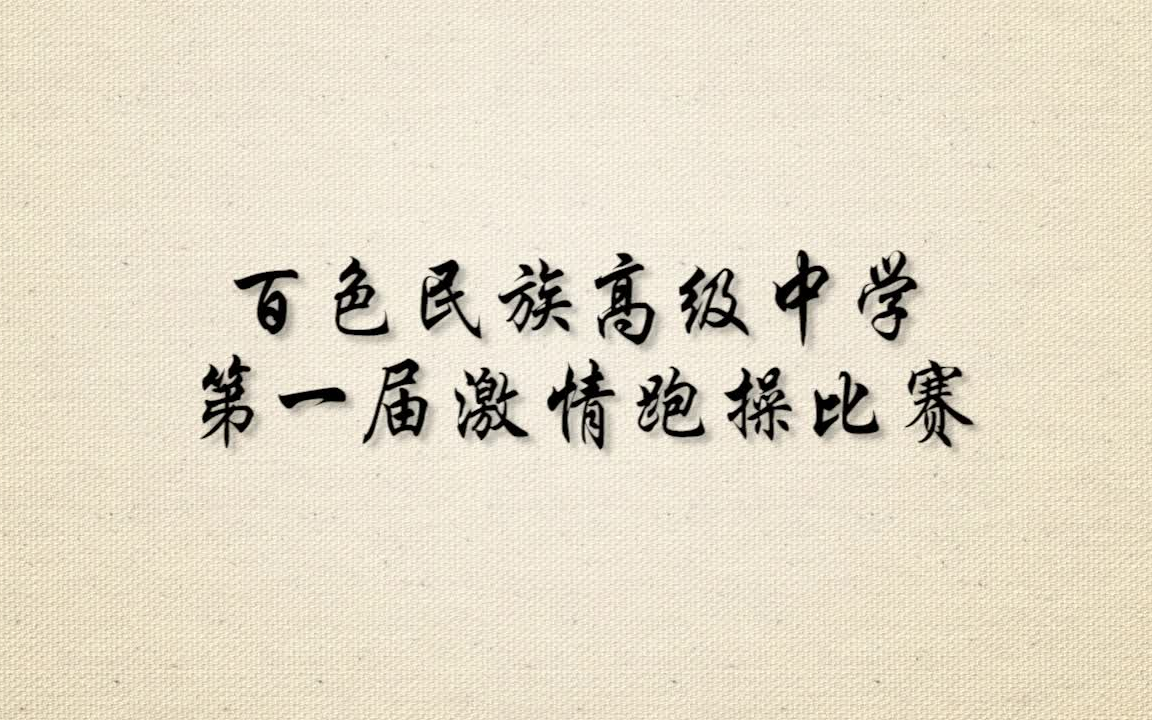 百色民族高级中学
第一届激情跑操比赛